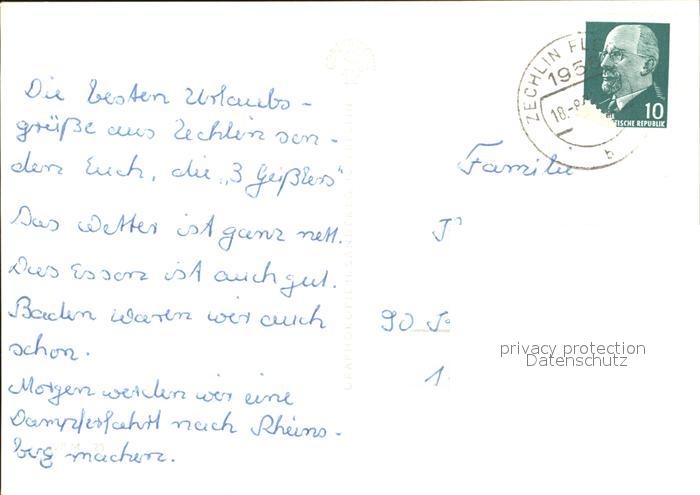 Die besten Urlaubs-
grüße aus Zechlin sen-
den Euch, die „3 Geißlers"
Das Wetter ist ganz nett.
Das Essen ist auch gut.
Baden waren wir auch
schon.
Morgen werden wir eine
Dampferfahrt nach Rheins-
berg machen.
ZECHLIN FL
195
18.-8
b
10
TISCHE REPUBLIK
Familie
90
privacy protection
Datenschutz